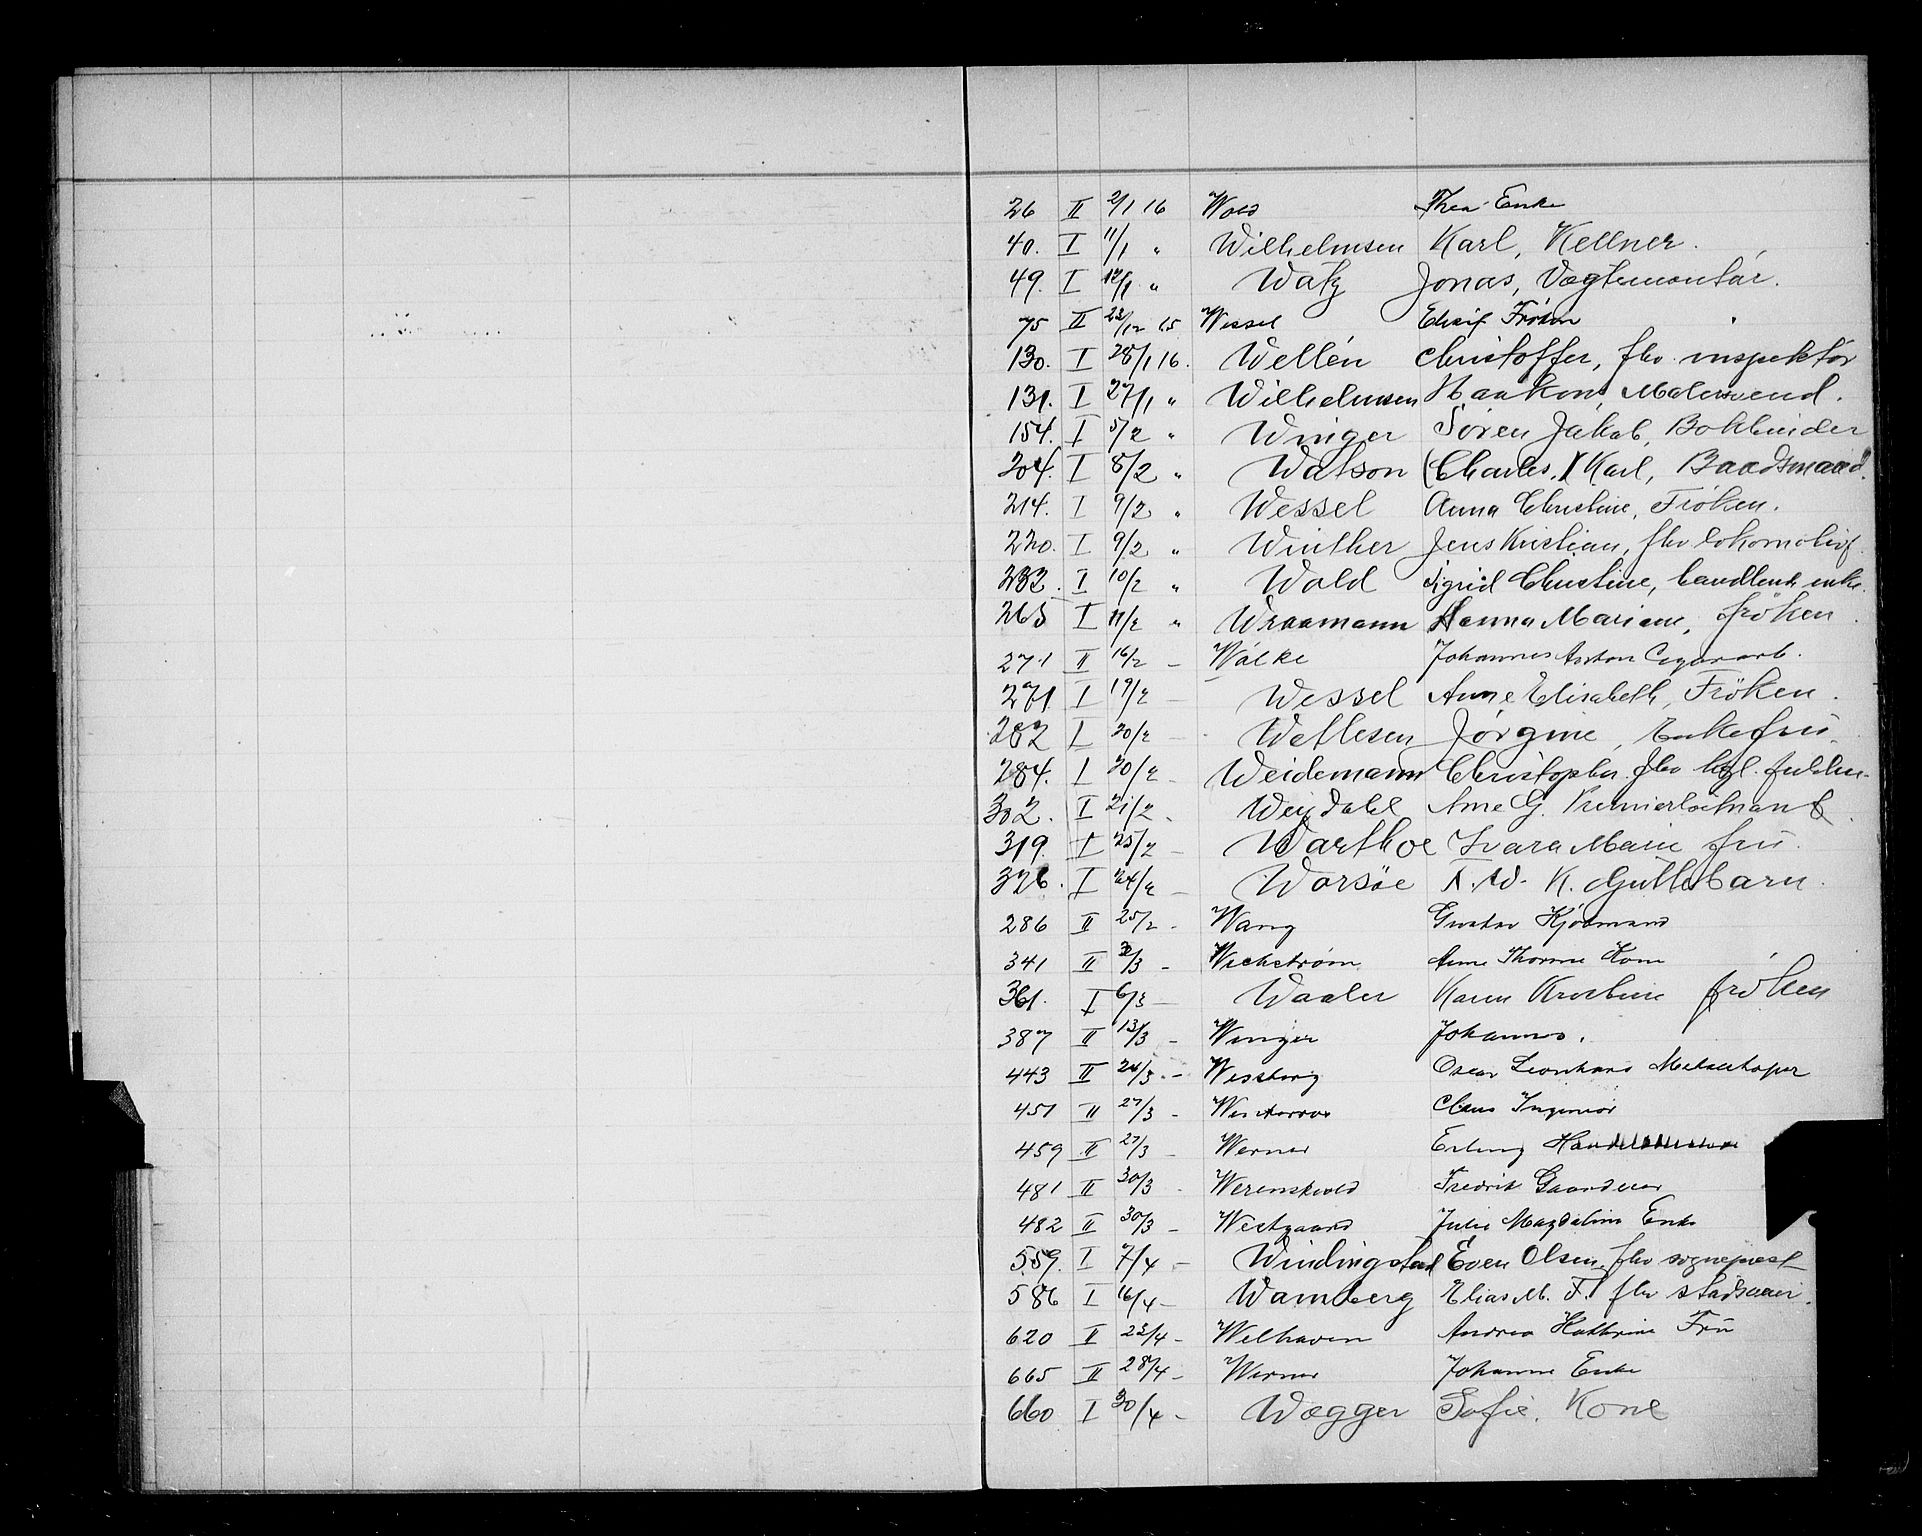 26 II 2/1 16 Wold Thea Enke
40. I 11/1 " Wilhelmsen Karl, Kellner.
49. I 12/1 " Watz Jonas, Vægtemontør.
75 II 23/12 15 Wessel Elisif Frøken
130. I 28/1 16. Wellén Christoffer, fhv. inspektør
131. I 27/1 " Wilhelmsen Haakon, Malersvend.
154. I 5/2 " Winger Sören Jakob, Bokbinder
204. I 8/2 " Watson (Charles,) Karl, Baadsmand.
214. I 9/2 " Wessel Anna Christine, Fröken.
220. I 9/2 " Winther Jens Kristian, fhv lokomotivf.
232. I 10/2 " Wold Sigrid Christine, handlende enke.
265 I 11/2 " Wraamann Hanna Mariane, fröken.
271 II 16/2 - Wälke Johannes Anton Cigararb.
271. I 19/2 - Wessel Anne Elisabeth, Fröken.
282 I 20/2 - Wetlesen Jörgine, Enkefru.
284. I 20/2 - Weidemann Christopher. fhv kgl. fuldm.
302. I 21/2 - Weydahl Arne G. Premierløitnant
319. I 25/2 - Warthoe Ivara Marie fru.
326. I 24/2 - Worsöe K. Guttebarn.
286 II 25/2 - Wang Gustav Kjøbmand
341 II 3/3 - Wickstrøm Anne Thorine Kone
361. I 6/3 - Waaler Karen Kristine fröken
387 II 13/3 - Winger Johannes.
443 II 24/3 - Wessberg Oscar Leonhard
451 II 27/3 - Claus Ingeniør
459 II 27/3 - Werner Erling
481 II 30/3 - Werenskiold Fredrik Gaardeier
482 II 30/3 - Westgaard Julie Magdalene Enke
559. I 7/4 - Windingstad Even Olsen, fhv sogneprest
586 I 16/4 - Wamberg Elias M. F. fhv
620 II 23/4 - Welhaven Andrea Kathrine Fru
665 II 28/4 - Werner Johanne Enke
660 I 30/4 - Wægger Sofie, Kone